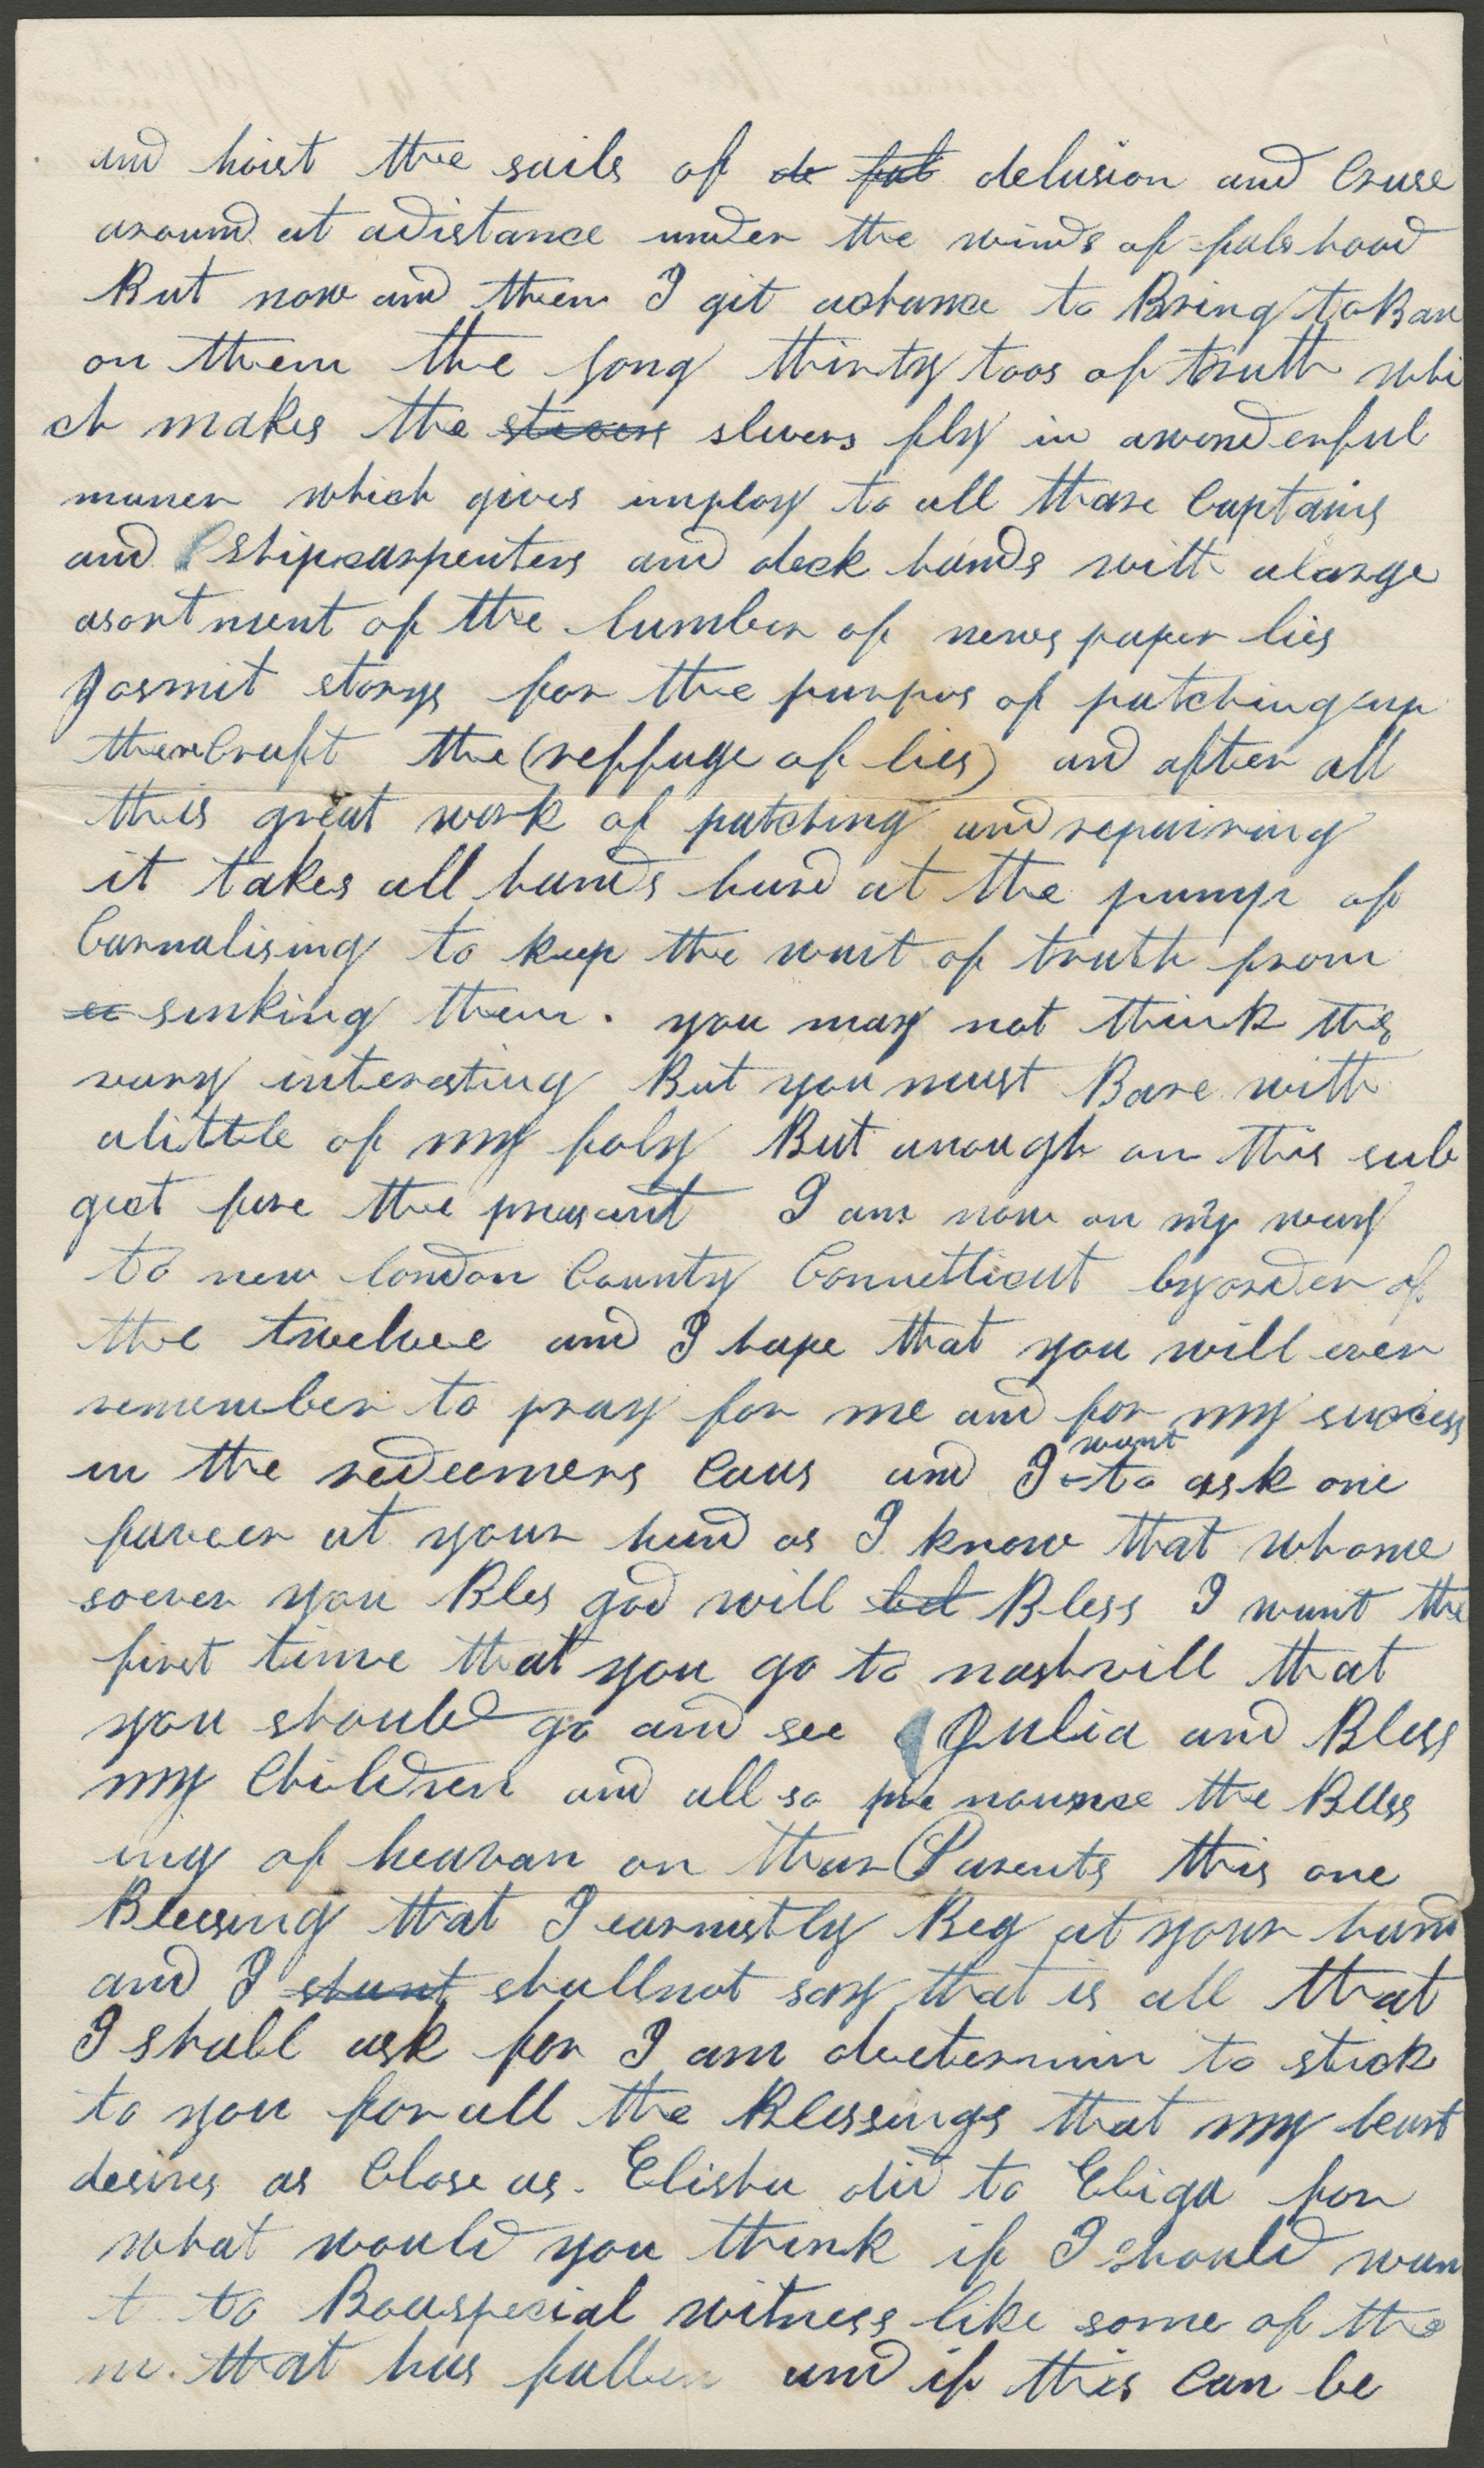 and hoist the sails of de fal delusion and Cruse
around at adistance under the winds of falshood
But now and then I git achance to Bring to Bare
on them the long thirty toos of truth whi
ch makes the slivers fly in awonderful
maner which gives imploy to all those Captains
and Shipcarpenters and deck hands with alarge
asortment of the lumber of news paper lies
gosmit storys for the purpos of patching up
there Craft the (reffuge of lies) and after all
this great work of patching and repairing
it takes all hands hard at the pump of
Carnalising to keep the wait of truth from
sinking them. you may not think this
very interesting But you must Bare with
alittle of my foly But anough on this sub
gect fore the presant I am now on my way
to new london County Connetticut by order of
the twelve and I hope that you will ever
remember to pray for me and for my success
in the redeemers Caus and I want to ask one
faveer at your hand as I know that whome
soever you Bles god will bel Bless I want the
first time that you go to nashvill that
you should go and see Julia and Bless
my Children and all so pro nounce the Bless
ing of heavan on thear Parents this one
Blessing that I earnistly Beg at your hand
and I shant shall not say that is all that
I shall ask for I am deetermin to stick
to you for all the Blessings that my heart
desires as Close as Elisha did to Eliga for
what would you think if I should wan
t to Bea special witness like some of the
m. that has fallen and if this can be